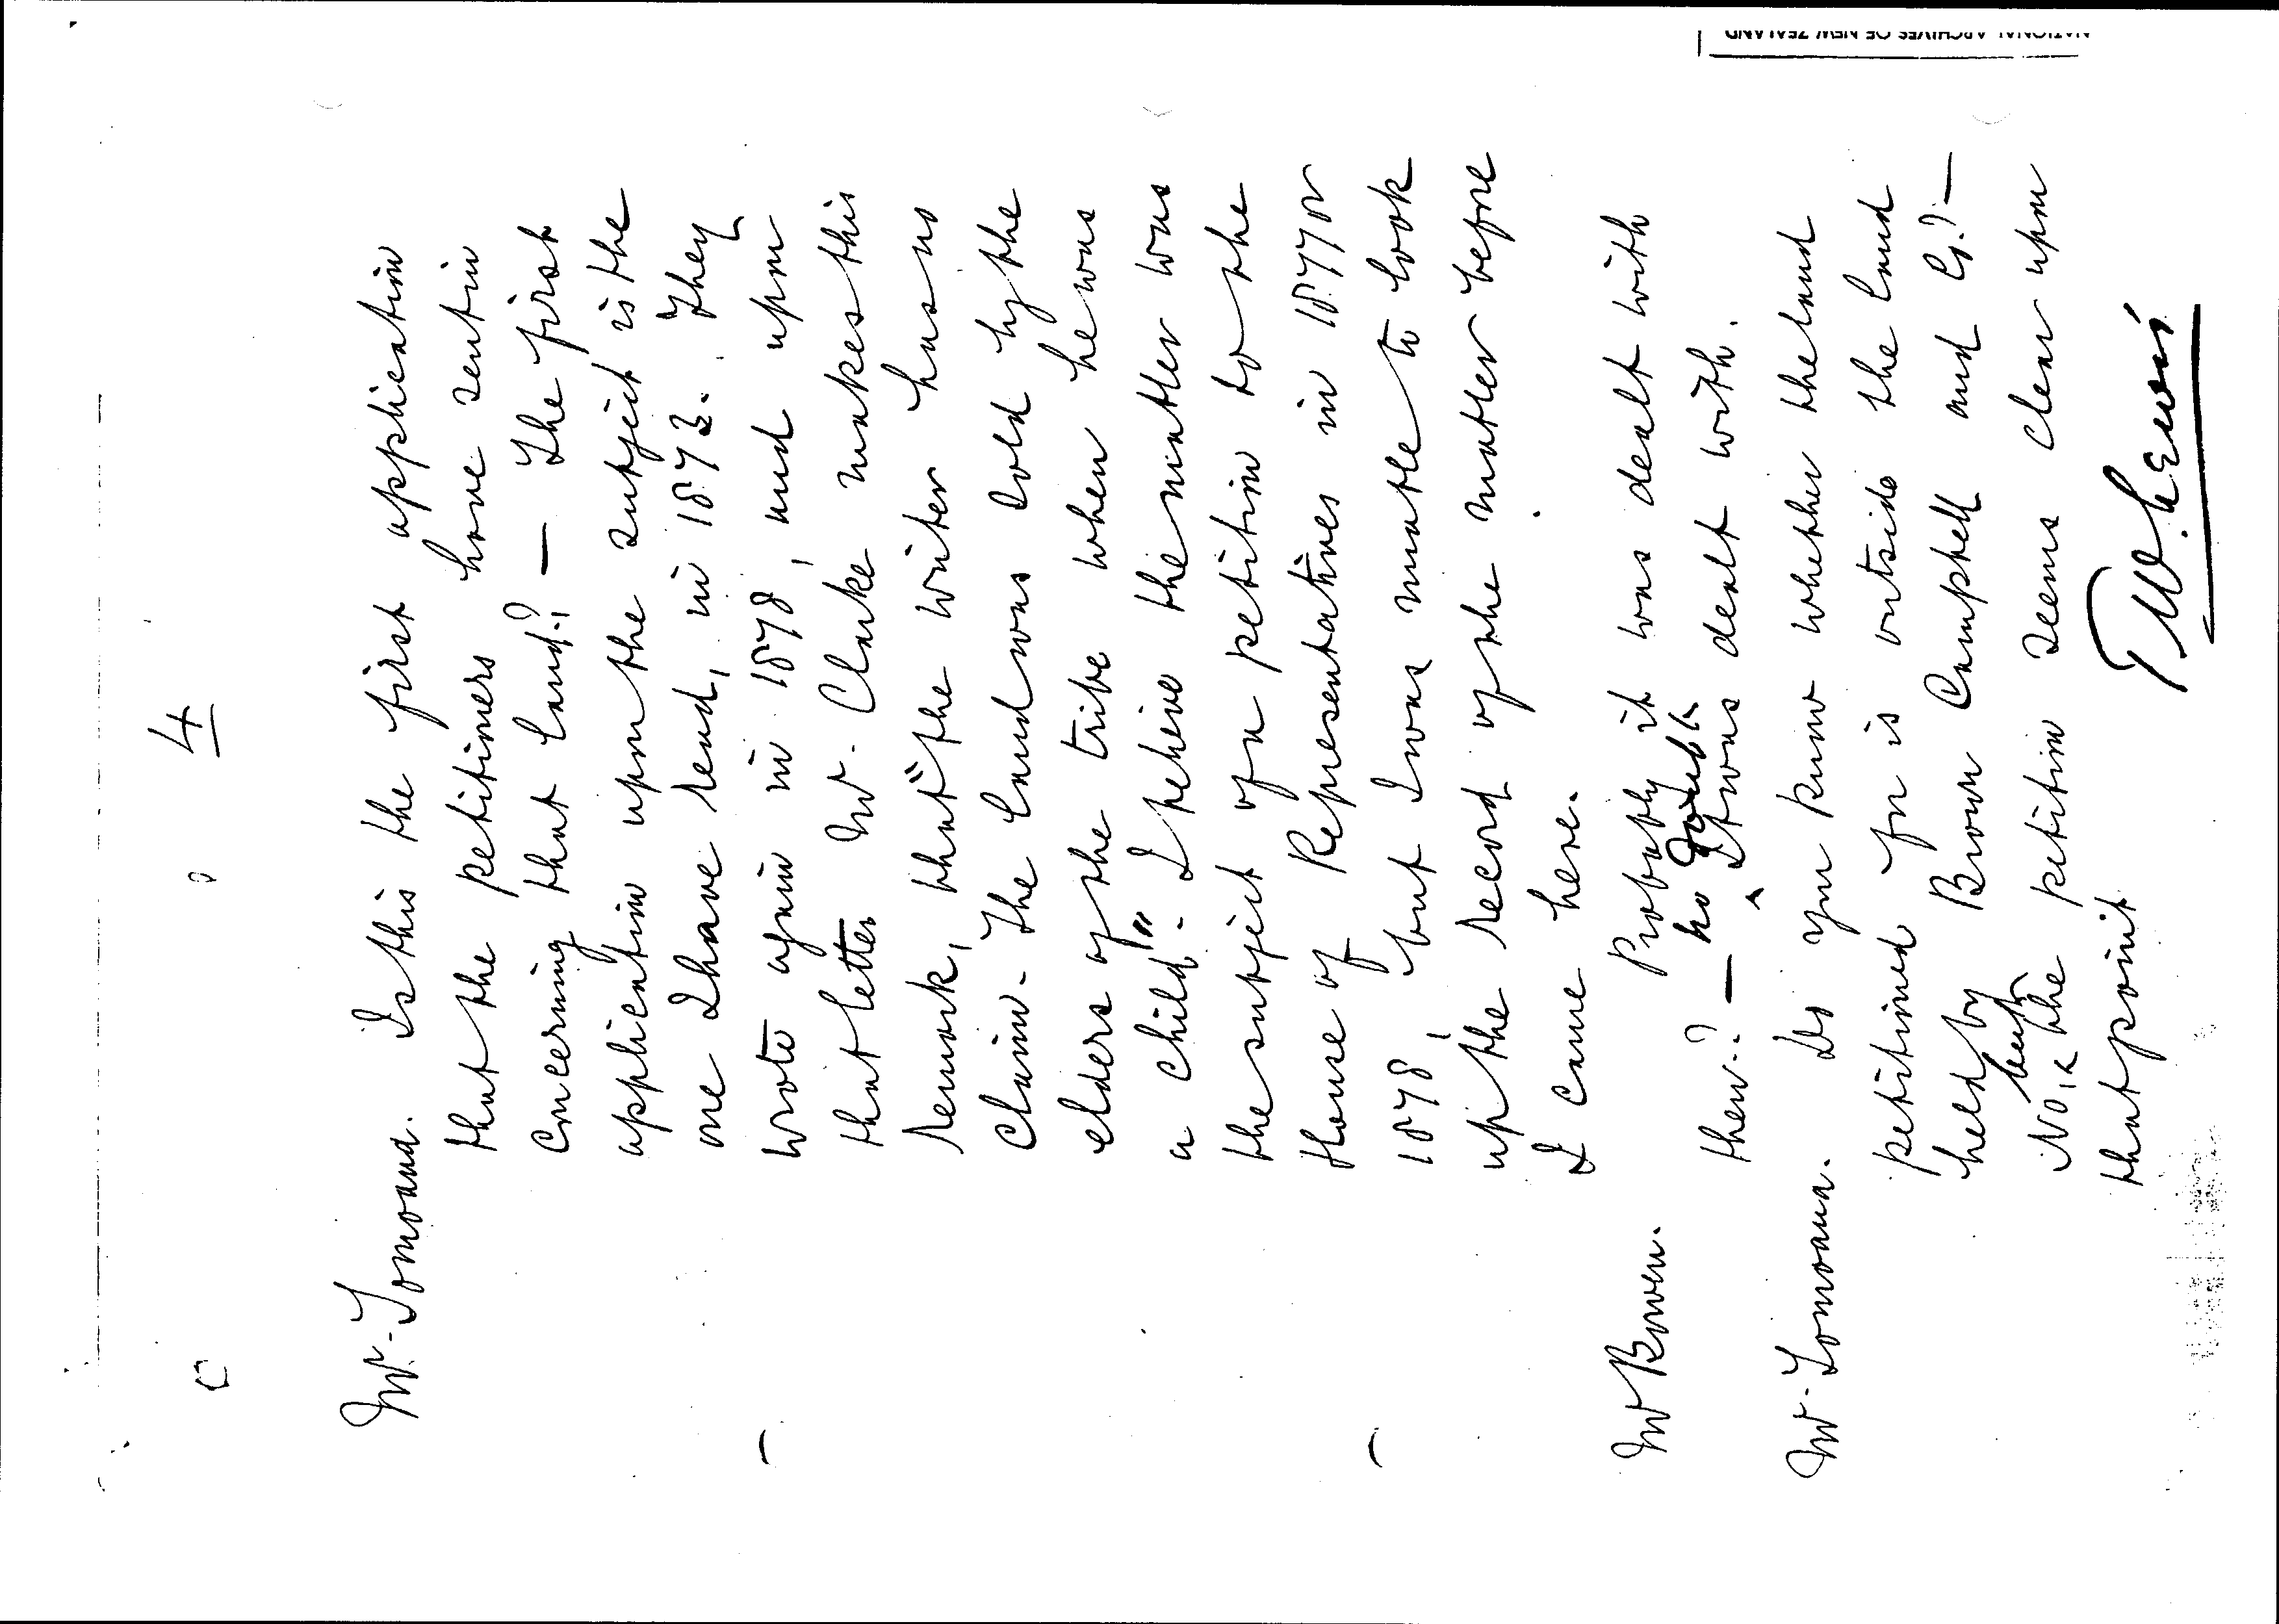 4
Mr. Tomoana. Is this the first application
that the petitioners have sent in
concerning that land? — The first
application upon the subject is the
one I have read, in 1873. They
wrote again in 1878, and upon
that letter Mr. Clarke makes this
remark, that "the writer has no
claim. The land was sold by the
elders of the tribe when he was
a child". I believe the matter was
the subject of a petition to the
House of Representatives in 1877 or
1878, but I was unable to look
up the record of the matter before
I came here.
Mr Bowen. Probably it was dealt with
then? — no doubt It was dealt with.
Mr. Tomoana. Do you know whether the land
petitioned for is outside the land
held by Brown Campbell and Co.? —
No, but the petition seems clear upon
that point
T W Lewis
NATIONAL ARCHIVES OF NEW ZEALAND